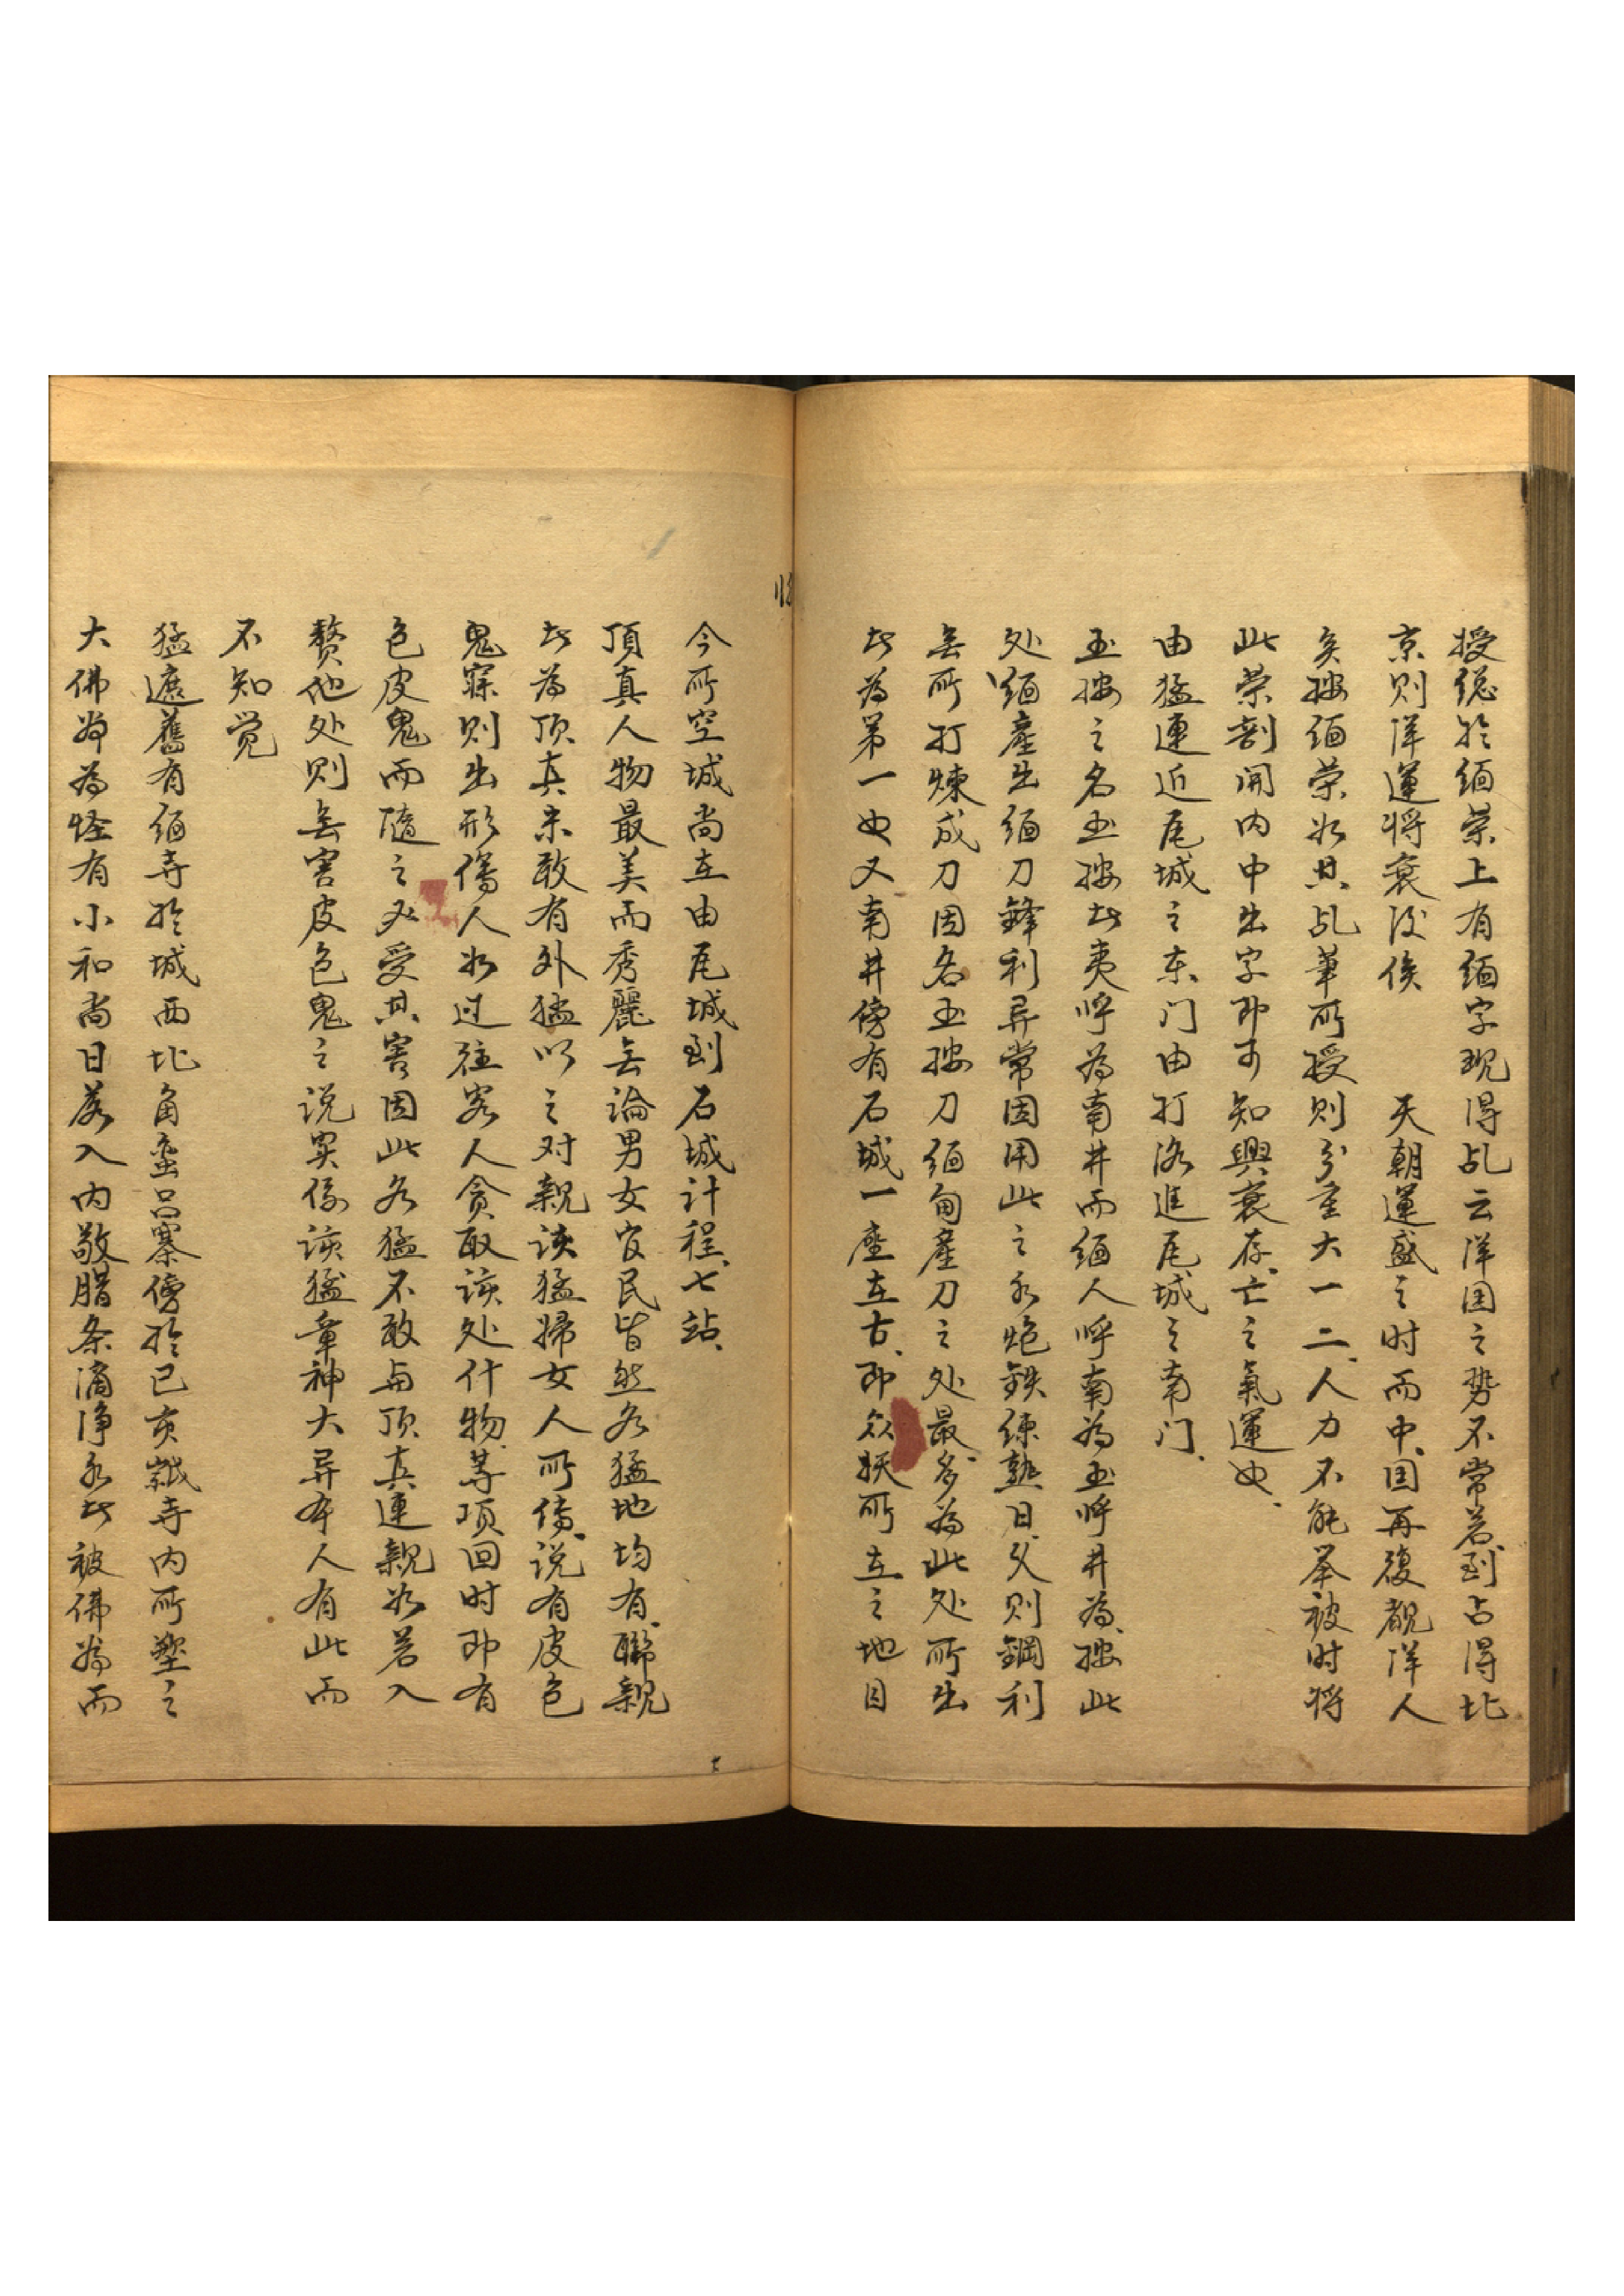 授緦於緬荣上有緬字現得乩云洋国之势不常若到占得北
京则洋運将衰後俟　天朝運盛之时而中国再復覩洋人
矣按缅荣如其乩筆所授则分重大一二人力不能举被时将
此荣剖開内中出字即可知興衰存亡之氣運也
由猛連近瓦城之东门由打洛進瓦城之南门
玉按之名玉按此夷呼為南井而缅人呼南為玉呼井為按此
处缅產出缅刀鋒利异常因用此之水炮鉄煉熟日久则鋼利
無所打煉成刀因名玉按刀缅甸產刀之处最多為此处所出
此為第一也又南井傍有石城一座在古即众妖所立之地目
今所空城尚在由瓦城到石城计程七站
頂真人物最美而秀麗無論男女官民皆然各猛地均有聯親
此為顶真未敢有外猛以之对親该猛婦女人所傳说有皮色
鬼寐则出形傷人如过往客人贪取该处什物等项回时即有
色皮鬼而隨之必受其害因此各猛不敢与顶真連親如若入
赘他处则無害皮色鬼之说实係该猛章神大异本人有此而
不知觉
猛遮舊有缅寺於城西北角蛮吕寨傍於已亥歲寺内所塑之
大佛爺為怪有小和尚日落入内敬腊条滴净水此被佛爺而